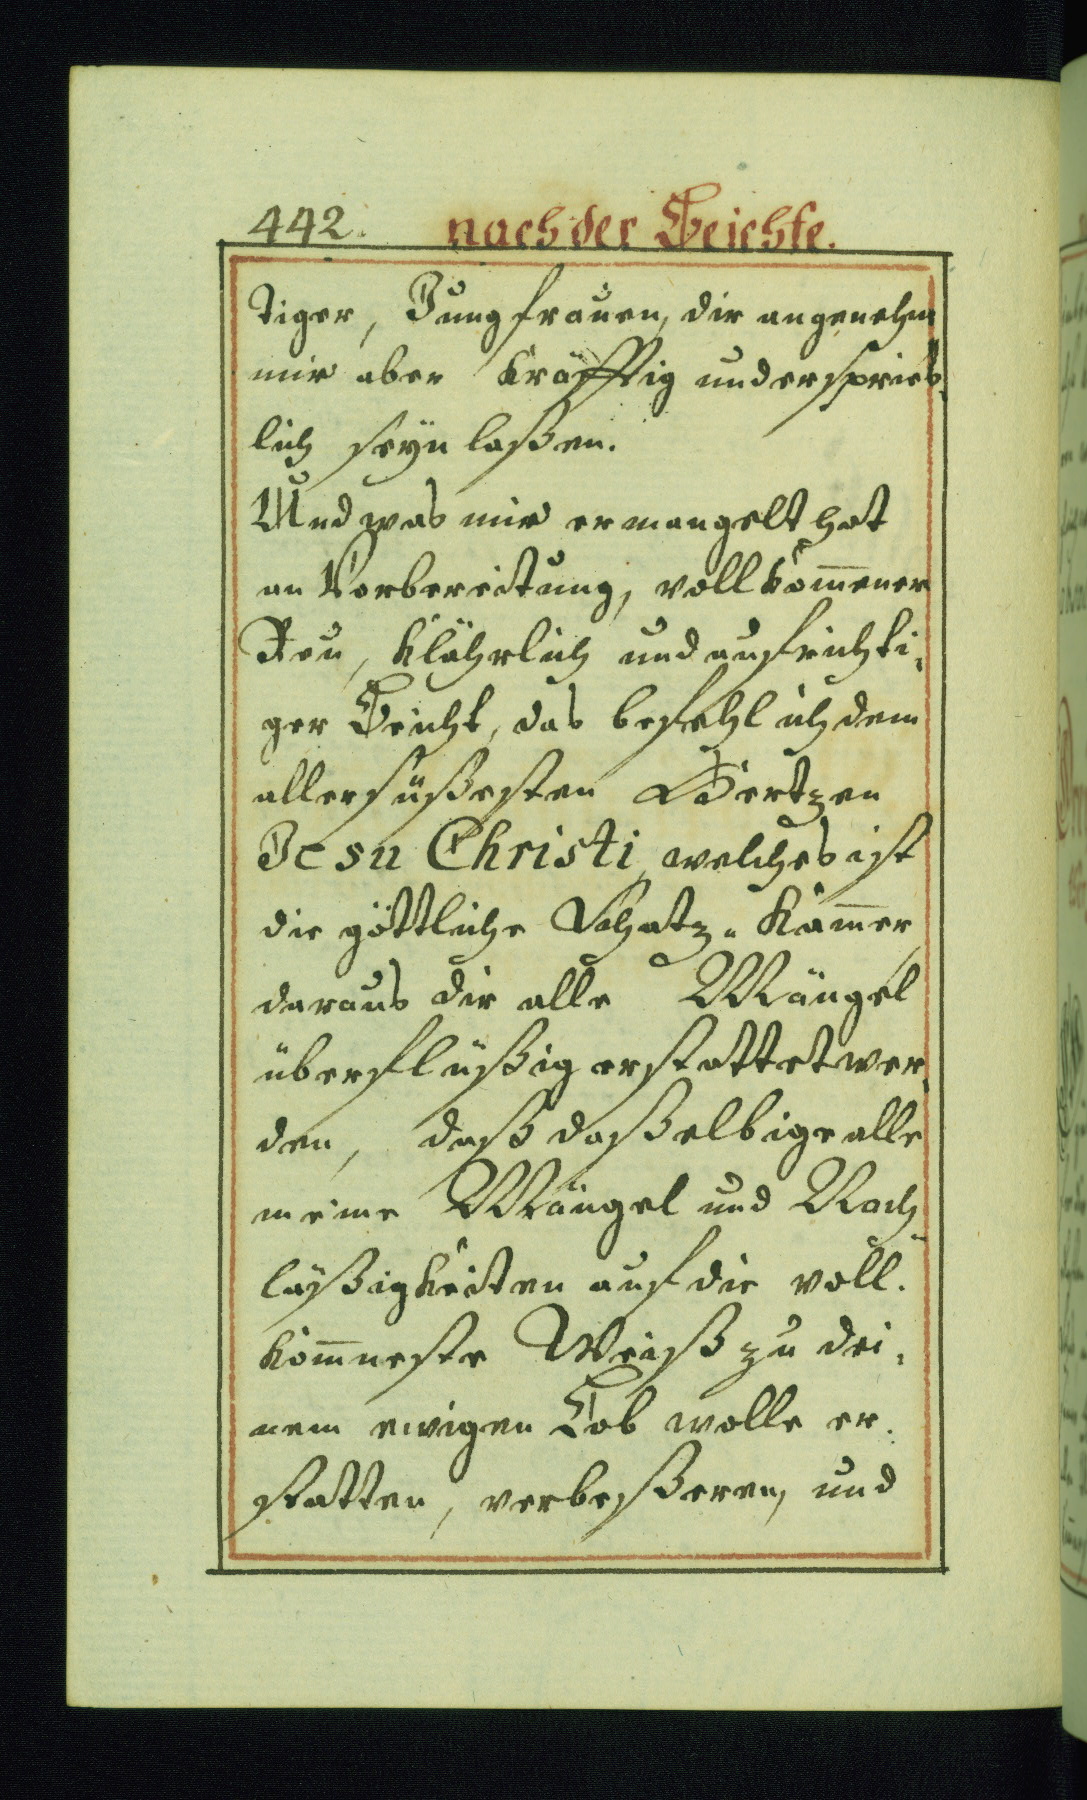 442. nach der Beichte.
tiger, Jungfrauen, dir angenehm
mir aber kräfftig und ersprieß¬
lich seÿn laßen.
Und was mir ermangelt hat
an Vorbereitung, vollkom̅ener
Reu, klährlich und aufrichti¬
ger Beicht, das befehl ich dem
allersüßesten Hertzen
Jesu Christi, welches ist
die göttliche Schatz-Kam̅er,
daraus dir alle Mängel
überflüßig erstattet wer¬
den, daß daßelbige alle
meine Mängel und Nach¬
läßigkeiten auf die voll¬
kom̅neste Weiß zu dei¬
nem ewigen Lob wolle er¬
statten, verbeßeren, und